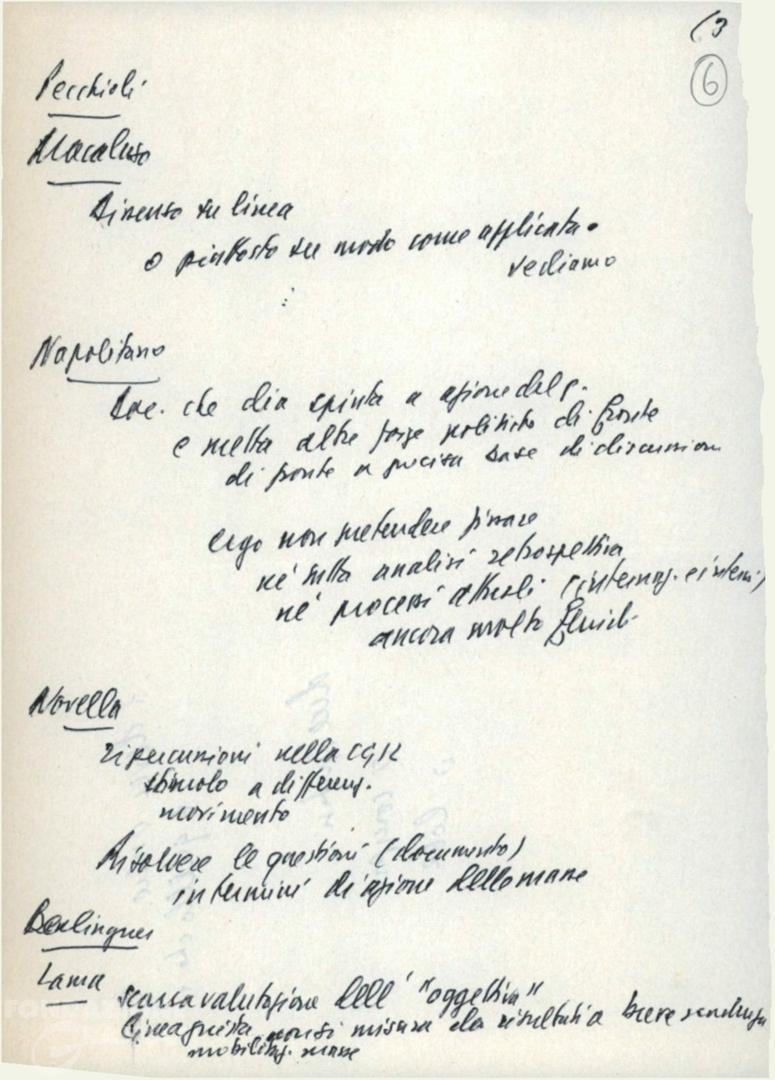 (3
6
Pecchioli
Macaluso
Dissenso su linea
o piuttosto su modo come applicata.
vediamo
Napolitano
Doc. che dia spinta a azione del p.
e metta altre forze politiche di fronte
di fronte a precisa base di discussione
ergo non pretendere fissare
né sulla analisi retrospettiva
né processi attuali (internaz. e interni)
ancora molto fluidi
Novella
ripercussioni nella CGIL
stimolo a differenz.
movimento
Risolvere le questioni (documento)
in termini di azione delle masse
Berlinguer
Lama
scarsa valutazione dell' "oggettiva"
linea giusta non si misura da risultati a breve scadenza
mobilitaz. masse